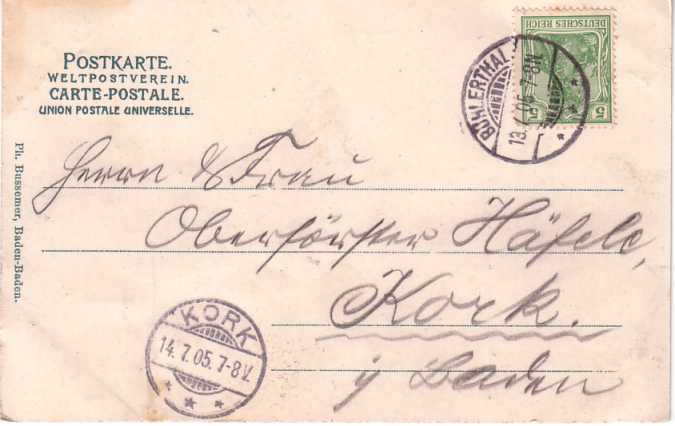 POSTKARTE.
WELTPOSTVEREIN.
CARTE-POSTALE.
UNION POSTALE UNIVERSELLE.
DEUTSCHES REICH
5 5
BÜHLERTHAL
13.7.05.7-8N.
Herrn & Frau
Oberförster Häfele,
Kork.
i/ Baden
Ph. Bussemer, Baden-Baden.
KORK
14.7.05.7-8V.